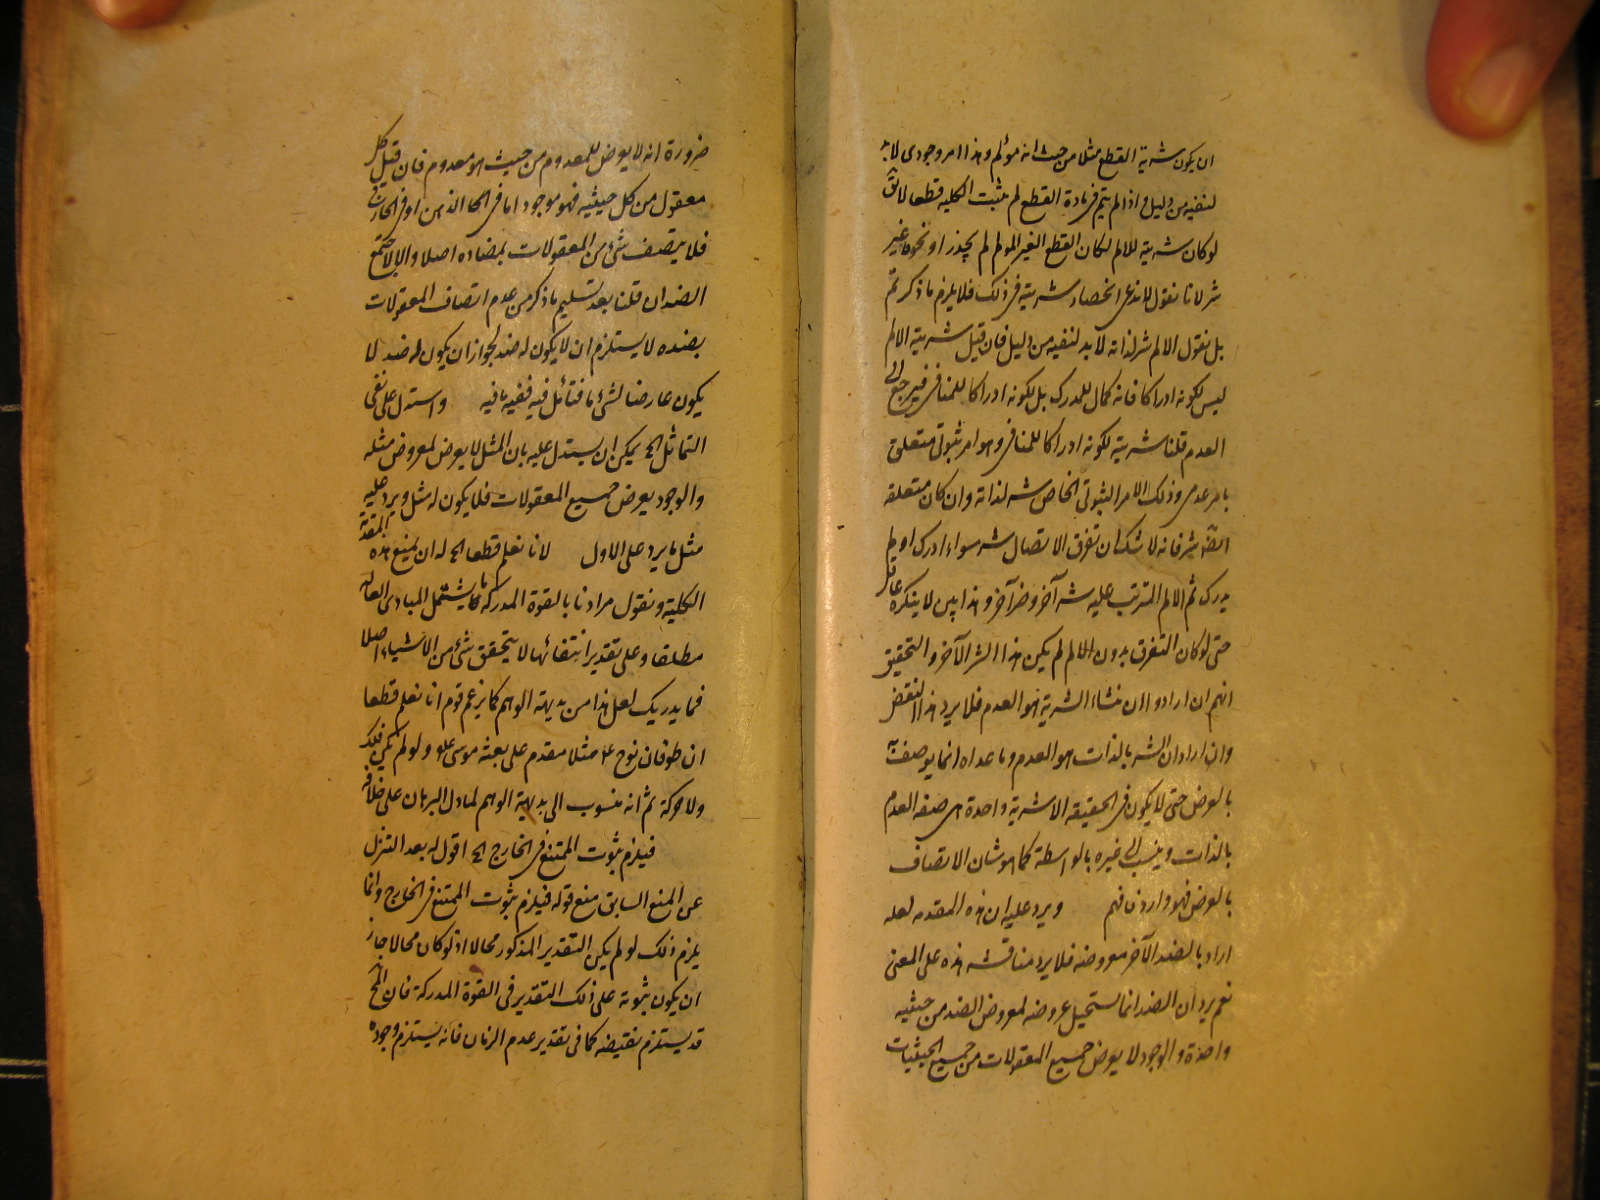 ان يكون شرية القطع مثلا من حيث انه مولم و هذا امر وجودى لابد
لنفيه من دليل و اذا لم يتم فى مادة القطع لم يثبت الكليه قطعا لا يق
لو كان شرية للالم لكان القطع الغير المولم لم يحذر او نحوها غير
شر لانا نقول لا ندعى انحصار شرية فى ذلك فلا يلزم ما ذكر ثم
بل نقول الالم شر لذاته لابد لنفيه من دليل فان قيل شرية الالم
ليس لكونه ادراكا فانه كمال للمدرك بل لكونه ادراكا للمنافى فيرجع الى
العدم قلنا شرية لكونه ادراكا للمنافى و هو امر ثبوتى متعلق
بامر عدمى و ذلك الامر الثبوتى الخاص شر لذاته و ان كان متعلقه
ايضا شر فانه لا شك ان تفرق الاتصال شر سواء ادرك او لم
يدرك ثم الالم المترتب عليه شر آخر و ضر آخر و هذا بين لا ينكره عاقل
حتى لو كان التفرق بدون الالم لم يكن هذا الشر الآخر و التحقيق
انهم ان ارادوا ان منشاء الشرية هو العدم فلا يرد هذا النقض
و ان ارادوا ان الشر بالذات هو العدم و ما عداه انما يوصف به
بالعرض حتى لا يكون فى الحقيقه الا شرية واحدة هى صفه العدم
بالذات و ينسب الى غيره بالواسطة كما هو شان الاتصاف
بالعرض فهو وارد فافهم و يرد عليه ان هذه المقدمه لعله
اراد بالضد الآخر معروضه فلا يرد مناقشه هذه على المعنى
نعم يرد ان الضد انما يستحيل عروضه لمعروض الضد من حيثيه
واحدة و الوجود لا يعرض جميع المعقولات من جميع الحيثيات
ضرورة انه لا يعرض للمعدوم من حيث هو معدوم فان قيل كل
معقول من كل حيثيه فهو موجود اما فى الذهن او فى الخارج
فلا يتصف شئ من المعقولات بمضاده اصلا و الا لاجتمع
الضدان قلنا بعد تسليم ما ذكر من عدم اتصاف المعقولات
بضده لا يستلزم ان لا يكون له ضد لجواز ان يكون له ضد لا
يكون عارضا لشئ ما فتأمل فيه ففيه ما فيه و استدل على نفى
التماثل الخ يمكن ان يستدل عليه بان المثل لا يعرض لمعروض مثله
و الوجود يعرض جميع المعقولات فلا يكون له مثل و يرد عليه
مثل ما يرد على الاول لانا نعلم قطعا الخ له ان يمنع هذه المقدمة
الكلية و نقول مرادنا بالقوة المدركة ما يشتمل المبادى العاليه
مطلقا و على تقدير انتفائها لا يتحقق شئ من الاشياء اصلا
فما يدريك لعل هذا من بديهة الوهم كما يزعم قوم انا نعلم قطعا
ان طوفان نوح ع مثلا مقدم على بعثه موسى ع و لو لم يكن فلك
و لا حركة ثم انه منسوب الى بديهة الوهم لما دل البرهان على خلافه
فيلزم ثبوت الممتنع فى الخارج الخ اقول له بعد التنزل
عن المنع السابق منع قوله فيلزم ثبوت الممتنع فى الخارج و انما
يلزم ذلك لو لم يكن التقدير المذكور محالا اذ لو كان محالا جاز
ان يكون ثبوته على ذلك التقدير فى القوة المدركة فان المح
قد يستلزم نقيضه كما فى تقدير عدم الزمان فانه يستلزم وجوده